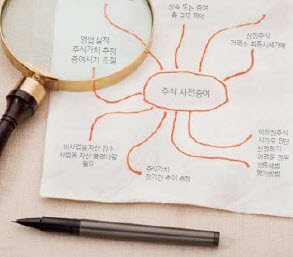 상속 또는 증여
총 규모 파악
영업실적
주식가치 추정
증여시기 조절
상장주식
거래소 최종시세가액
주식 사전증여
비사업용 자산 감소
사업용 자산 늘려나갈
필요
주식가치
장기간 추이 추정
비상장주식
시가로 판단
산정하기
어려운 경우
상증세법
평가방법